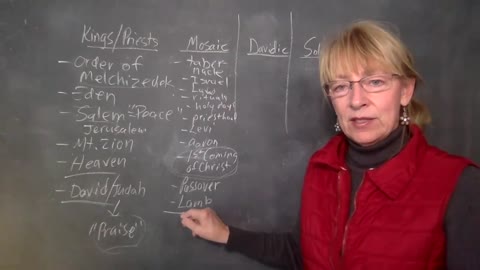 Kings/Priests
- Order of
Melchizedek
- Eden
- Salem "Peace"
Jerusalem
- Mt. Zion
- Heaven
- David/Judah
"Praise"
Mosaic
- taber-
nacle
- Israel
- rituals
- holy days
- priesthood
- Levi
- Aaron
- 1st Coming
of Christ
- Passover
- Lamb
Davidic